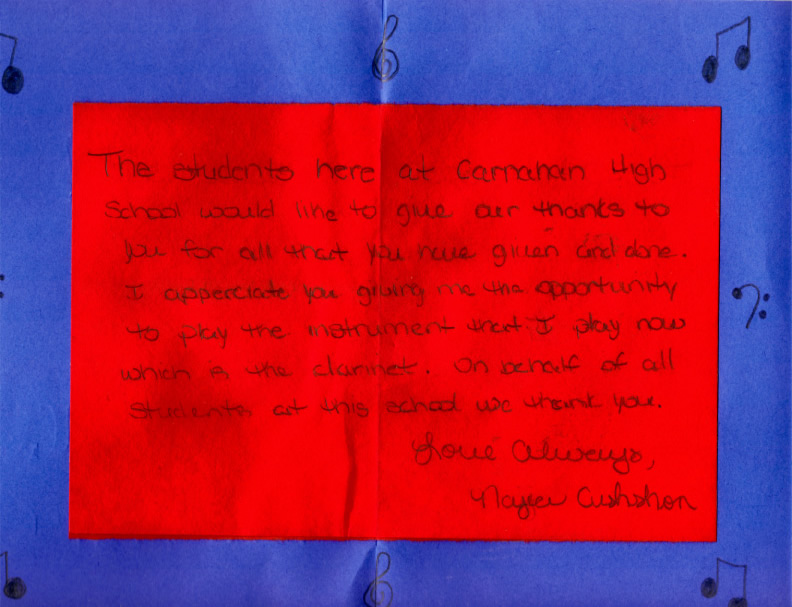 The students here at Carnahan High
School would like to give our thanks to
you for all that you have given and done.
I apperciate you giving me the opportunity
to play the instrument that I play now
which is the clarinet. On behalf of all
students at this school we thank you.
Love Always,